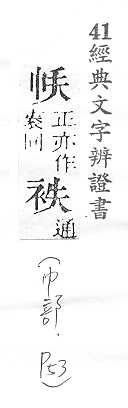 41經典文字辨證書
帙正亦作
袠同
袟通
(巾部.P53)